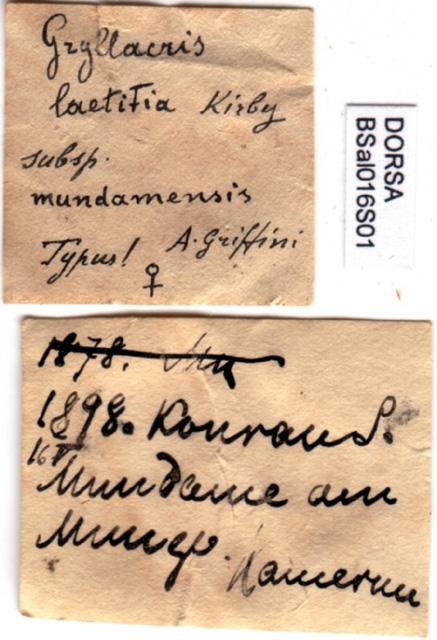 Gryllacris
laetitia Kirby
subsp.
mundamensis
Typus! A. Griffini
♀
DORSA
BSal016S01
1878. Mu
1898. Konrau S.
16
Mundame am
Mungo. Kamerun